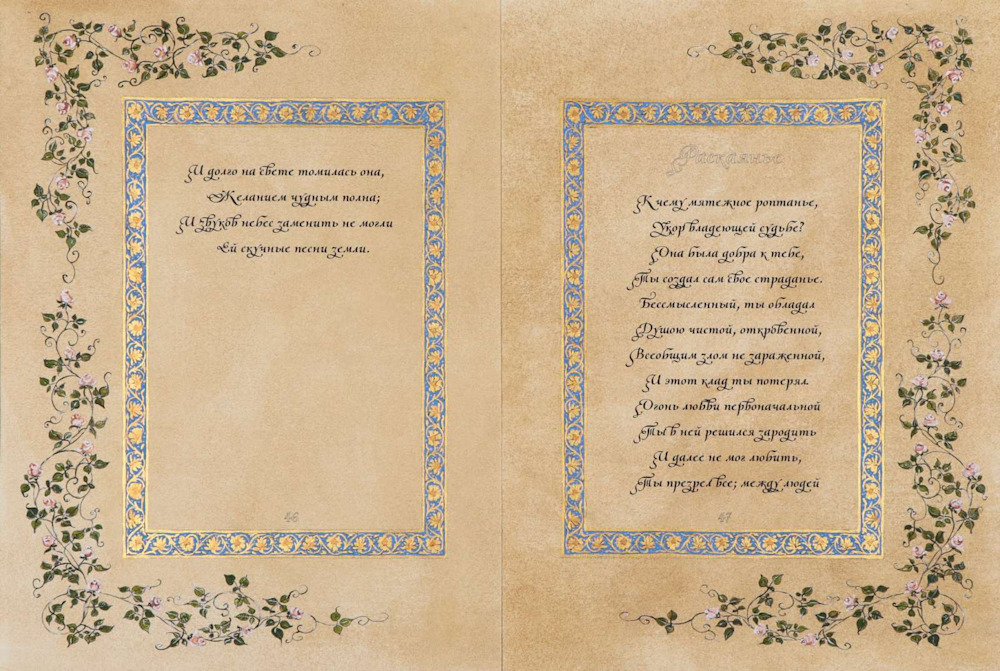 И долго на свете томилась она,
Желанием чудным полна;
И звуков небес заменить не могли
Ей скучные песни земли.
46
Раскаянье
К чему мятежное роптанье,
Укор владеющей судьбе?
Она была добра к тебе,
Ты создал сам свое страданье.
Бессмысленный, ты обладал
Душою чистой, откровенной,
Всеобщим злом не зараженной,
И этот клад ты потерял.
Огонь любви первоначальной
Ты в ней решился зародить
И далее не мог любить,
Ты презрел все; между людей
47